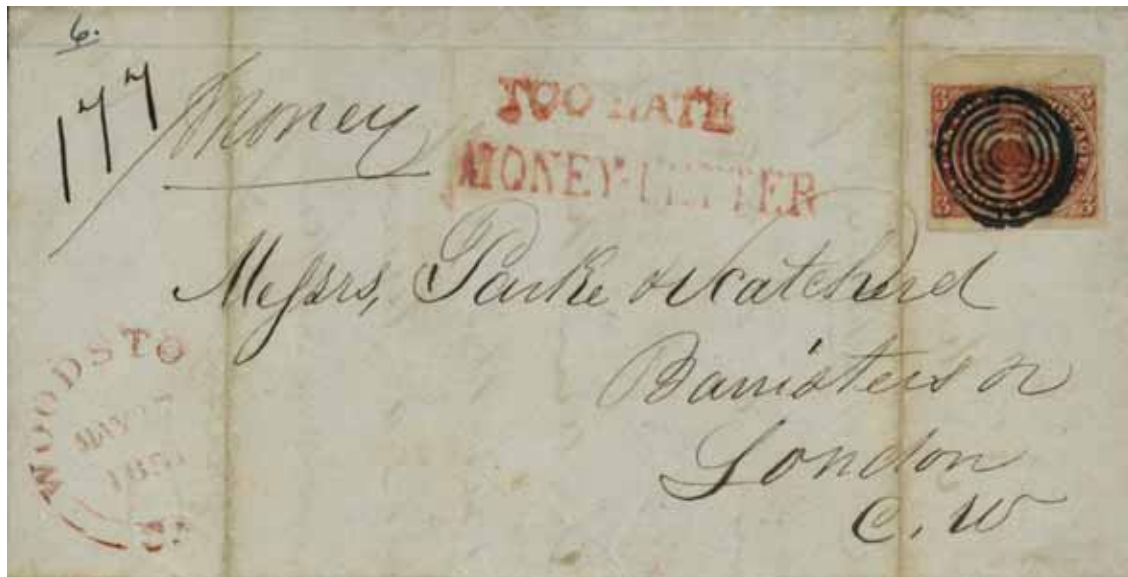 6.
177
Money
TOO LATE
MONEY-LETTER
3 3
3 3
Messrs, Parke & Scatcherd
Barristers &
London
C. W
WOODSTO